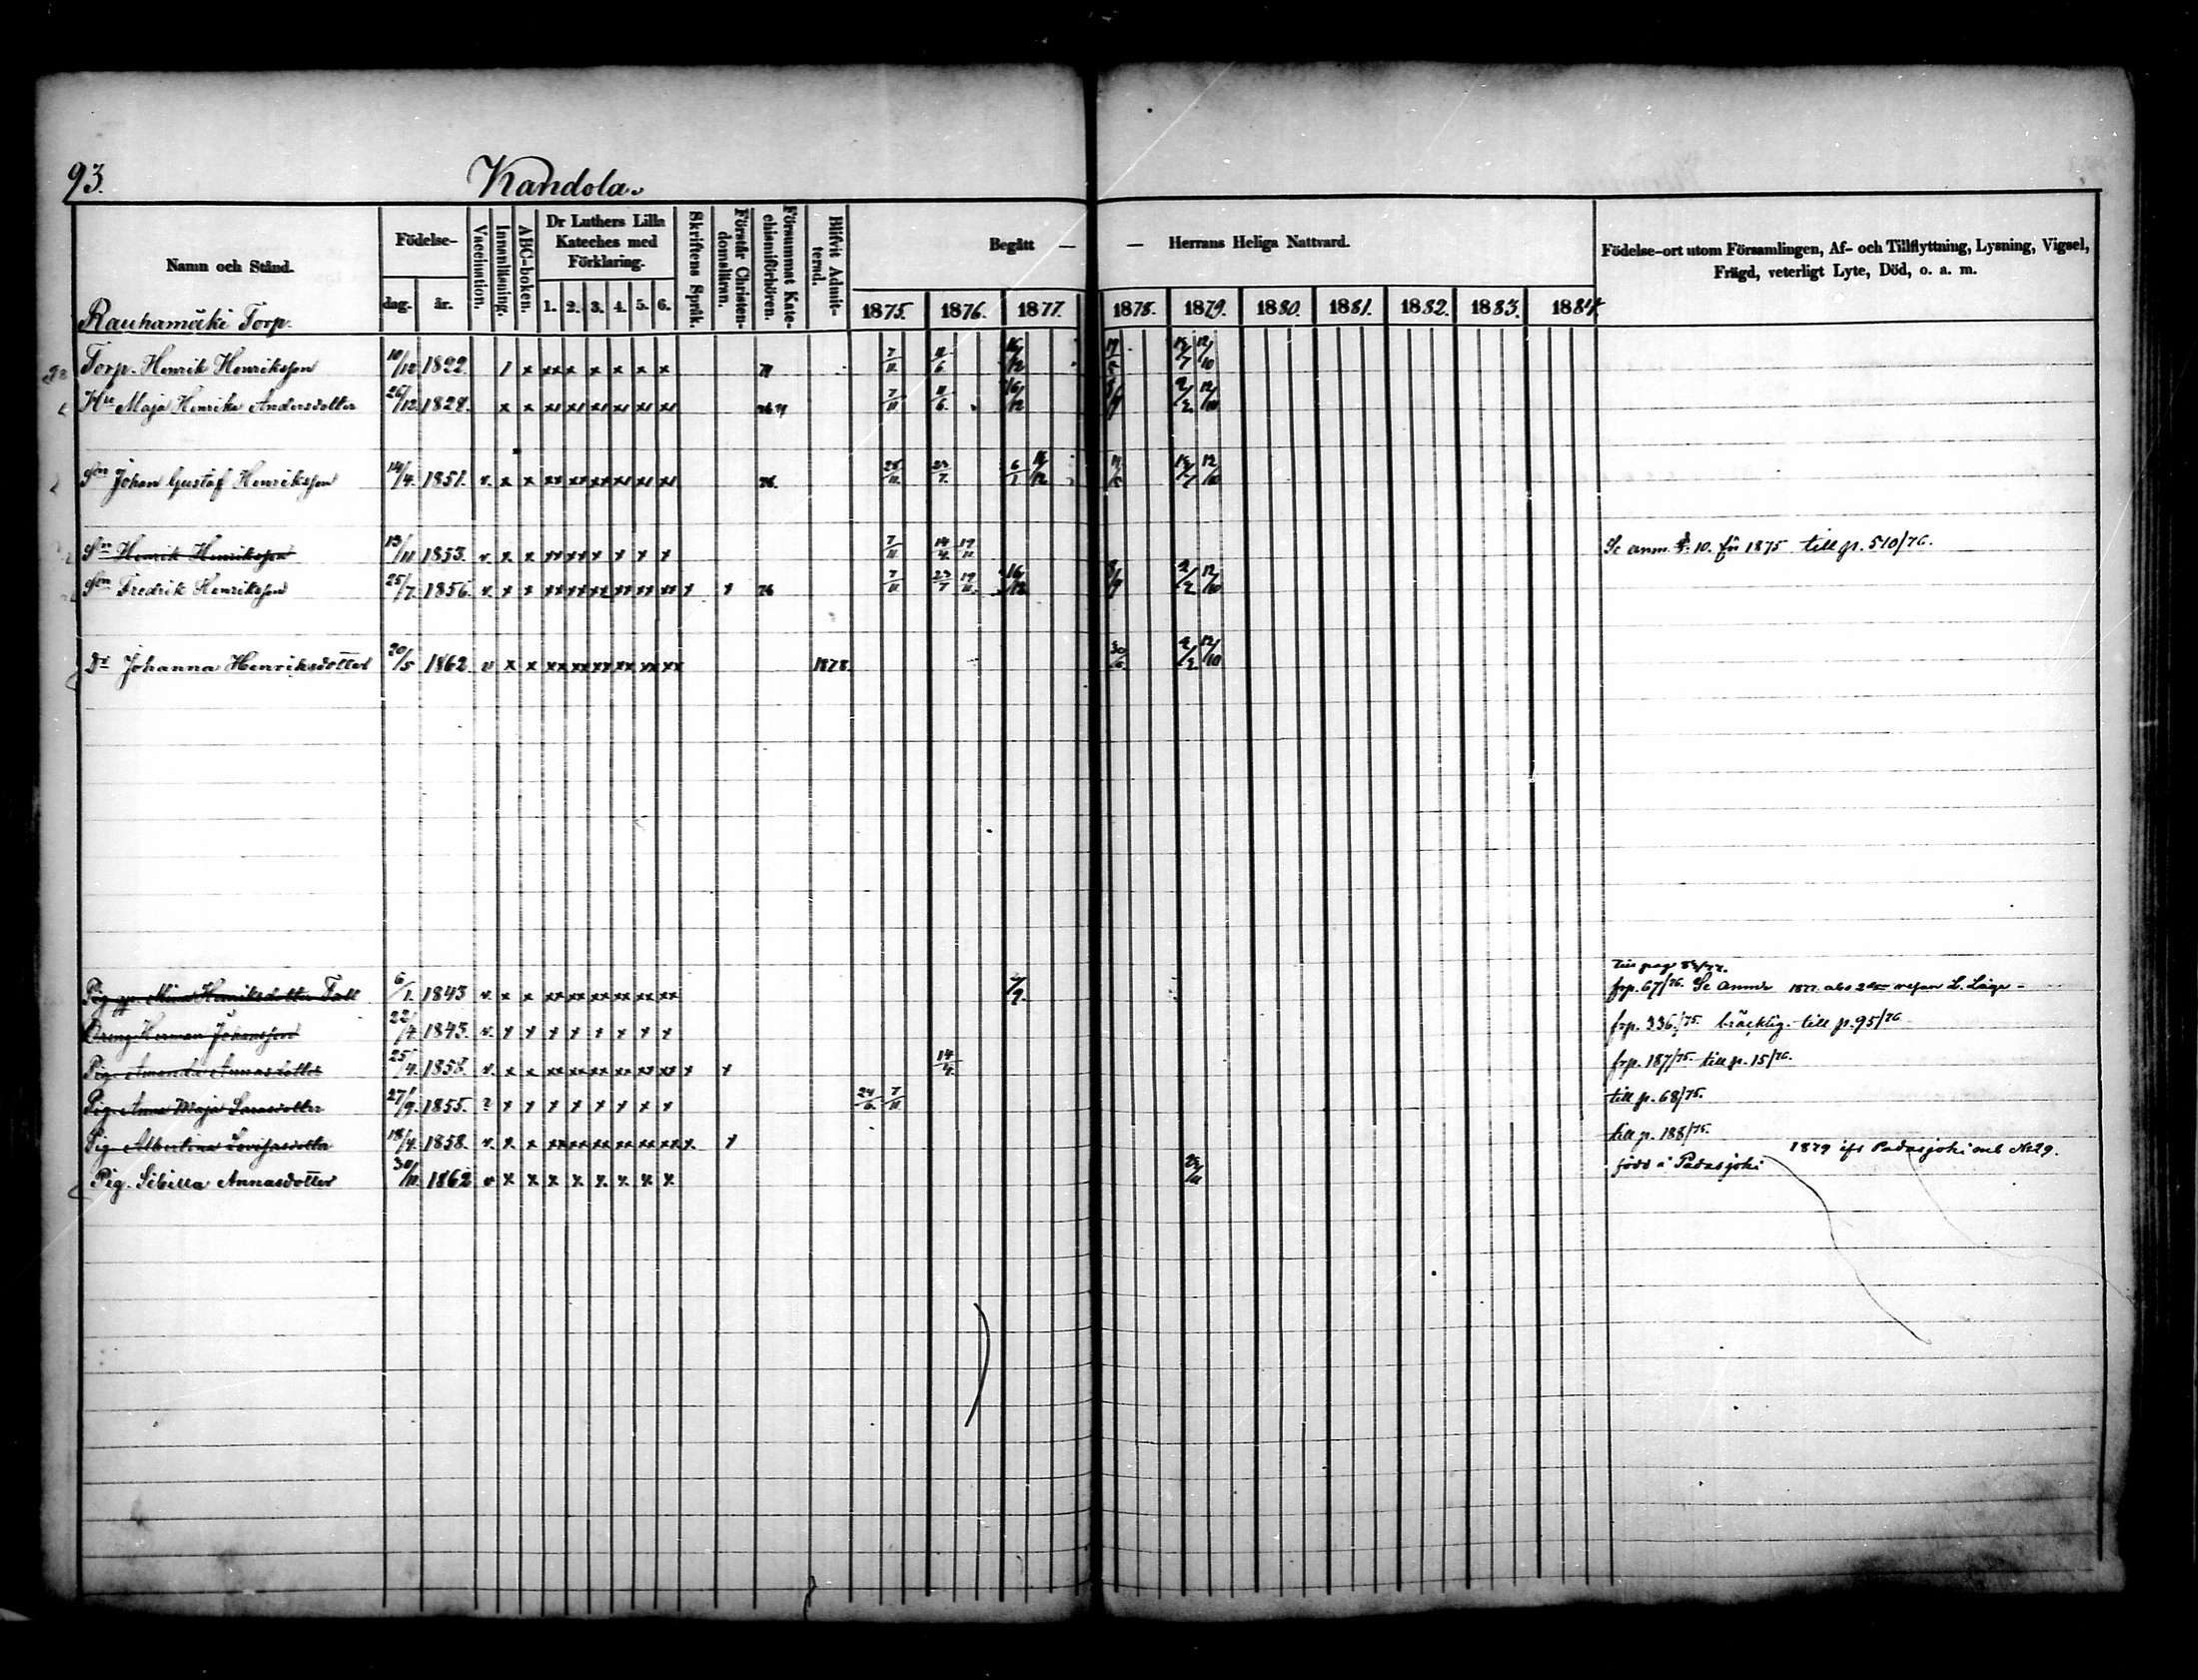 93.
Kandola.
Namn och Stånd.
Födelse-
dag. år.
Vaccination.
Innanläsning.
ABC-boken.
Dr Luthers Lilla Kateches med Förklaring.
1. 2. 3. 4. 5. 6.
Skriftens Språk.
Förstår Christendomsläran.
Försummat Katechismiförhören.
Blifvit Admitterad.
Begått — — Herrans Heliga Nattvard.
1875. 1876. 1877. 1878. 1879. 1880. 1881. 1882. 1883. 1884
Födelse-ort utom Församlingen, Af- och Tillflyttning, Lysning, Vigsel,
Frägd, veterligt Lyte, Död, o. a. m.
Rauhamäki Torp.
Torp. Henrik Henriksson 10/12 1822. 1 x xx x x x x x 7/11 11/6 16/12 12/10
Hu Maja Henrika Andersdotter 26/12 1828. x x x x x x x x 7/11 11/6 16/12 8/9 12/10
Son Johan Gustaf Henriksson 14/4. 1851. v. x x xx xx xx x x x 76 12/10
Sn Henrik Henriksson 13/11 1853. v. x x xx xx x x x x 7/11 14/4 19/11 Se anm. 10. för 1875 till p. 510/76.
Son Fredrik Henriksson 25/7. 1856. v. x x xx xx xx xx xx xx x x 76 7/11 23/7 19/11 16/12 8/9 12/10
Dr Johanna Henriksdotter 20/5 1862. v x x xx xx xx xx xx xx 1878. 30/6 12/10
Pig Mina Henriksdotter Tall 6/1. 1843 v. x x xx xx xx xx xx xx 7/9. frp. 67/76. Se anm 1877
Dreng Herman Johansson 22/7 1843. v. x x x x x x x x frp. 336/75. bräcklig. till p. 95/76
Pig. Amanda Annasdotter 25/4. 1858. v. x x xx xx xx xx xx xx x x 14/4 frp. 187/75 till p. 15/76.
Pig. Anna Maja Sarasdotter 27/9. 1855. ? x x x x x x x x 24/6. 7/11 till p. 68/75.
Pig. Albertina Lovisasdotter 18/4. 1858. v. x x xx xx xx xx xx xx x. x till p. 188/75.
Pig. Sibilla Annasdotter 30/11 1862 v x x x x x x x x född i Padasjoki 1879 ifr Padasjoki mb No 29.